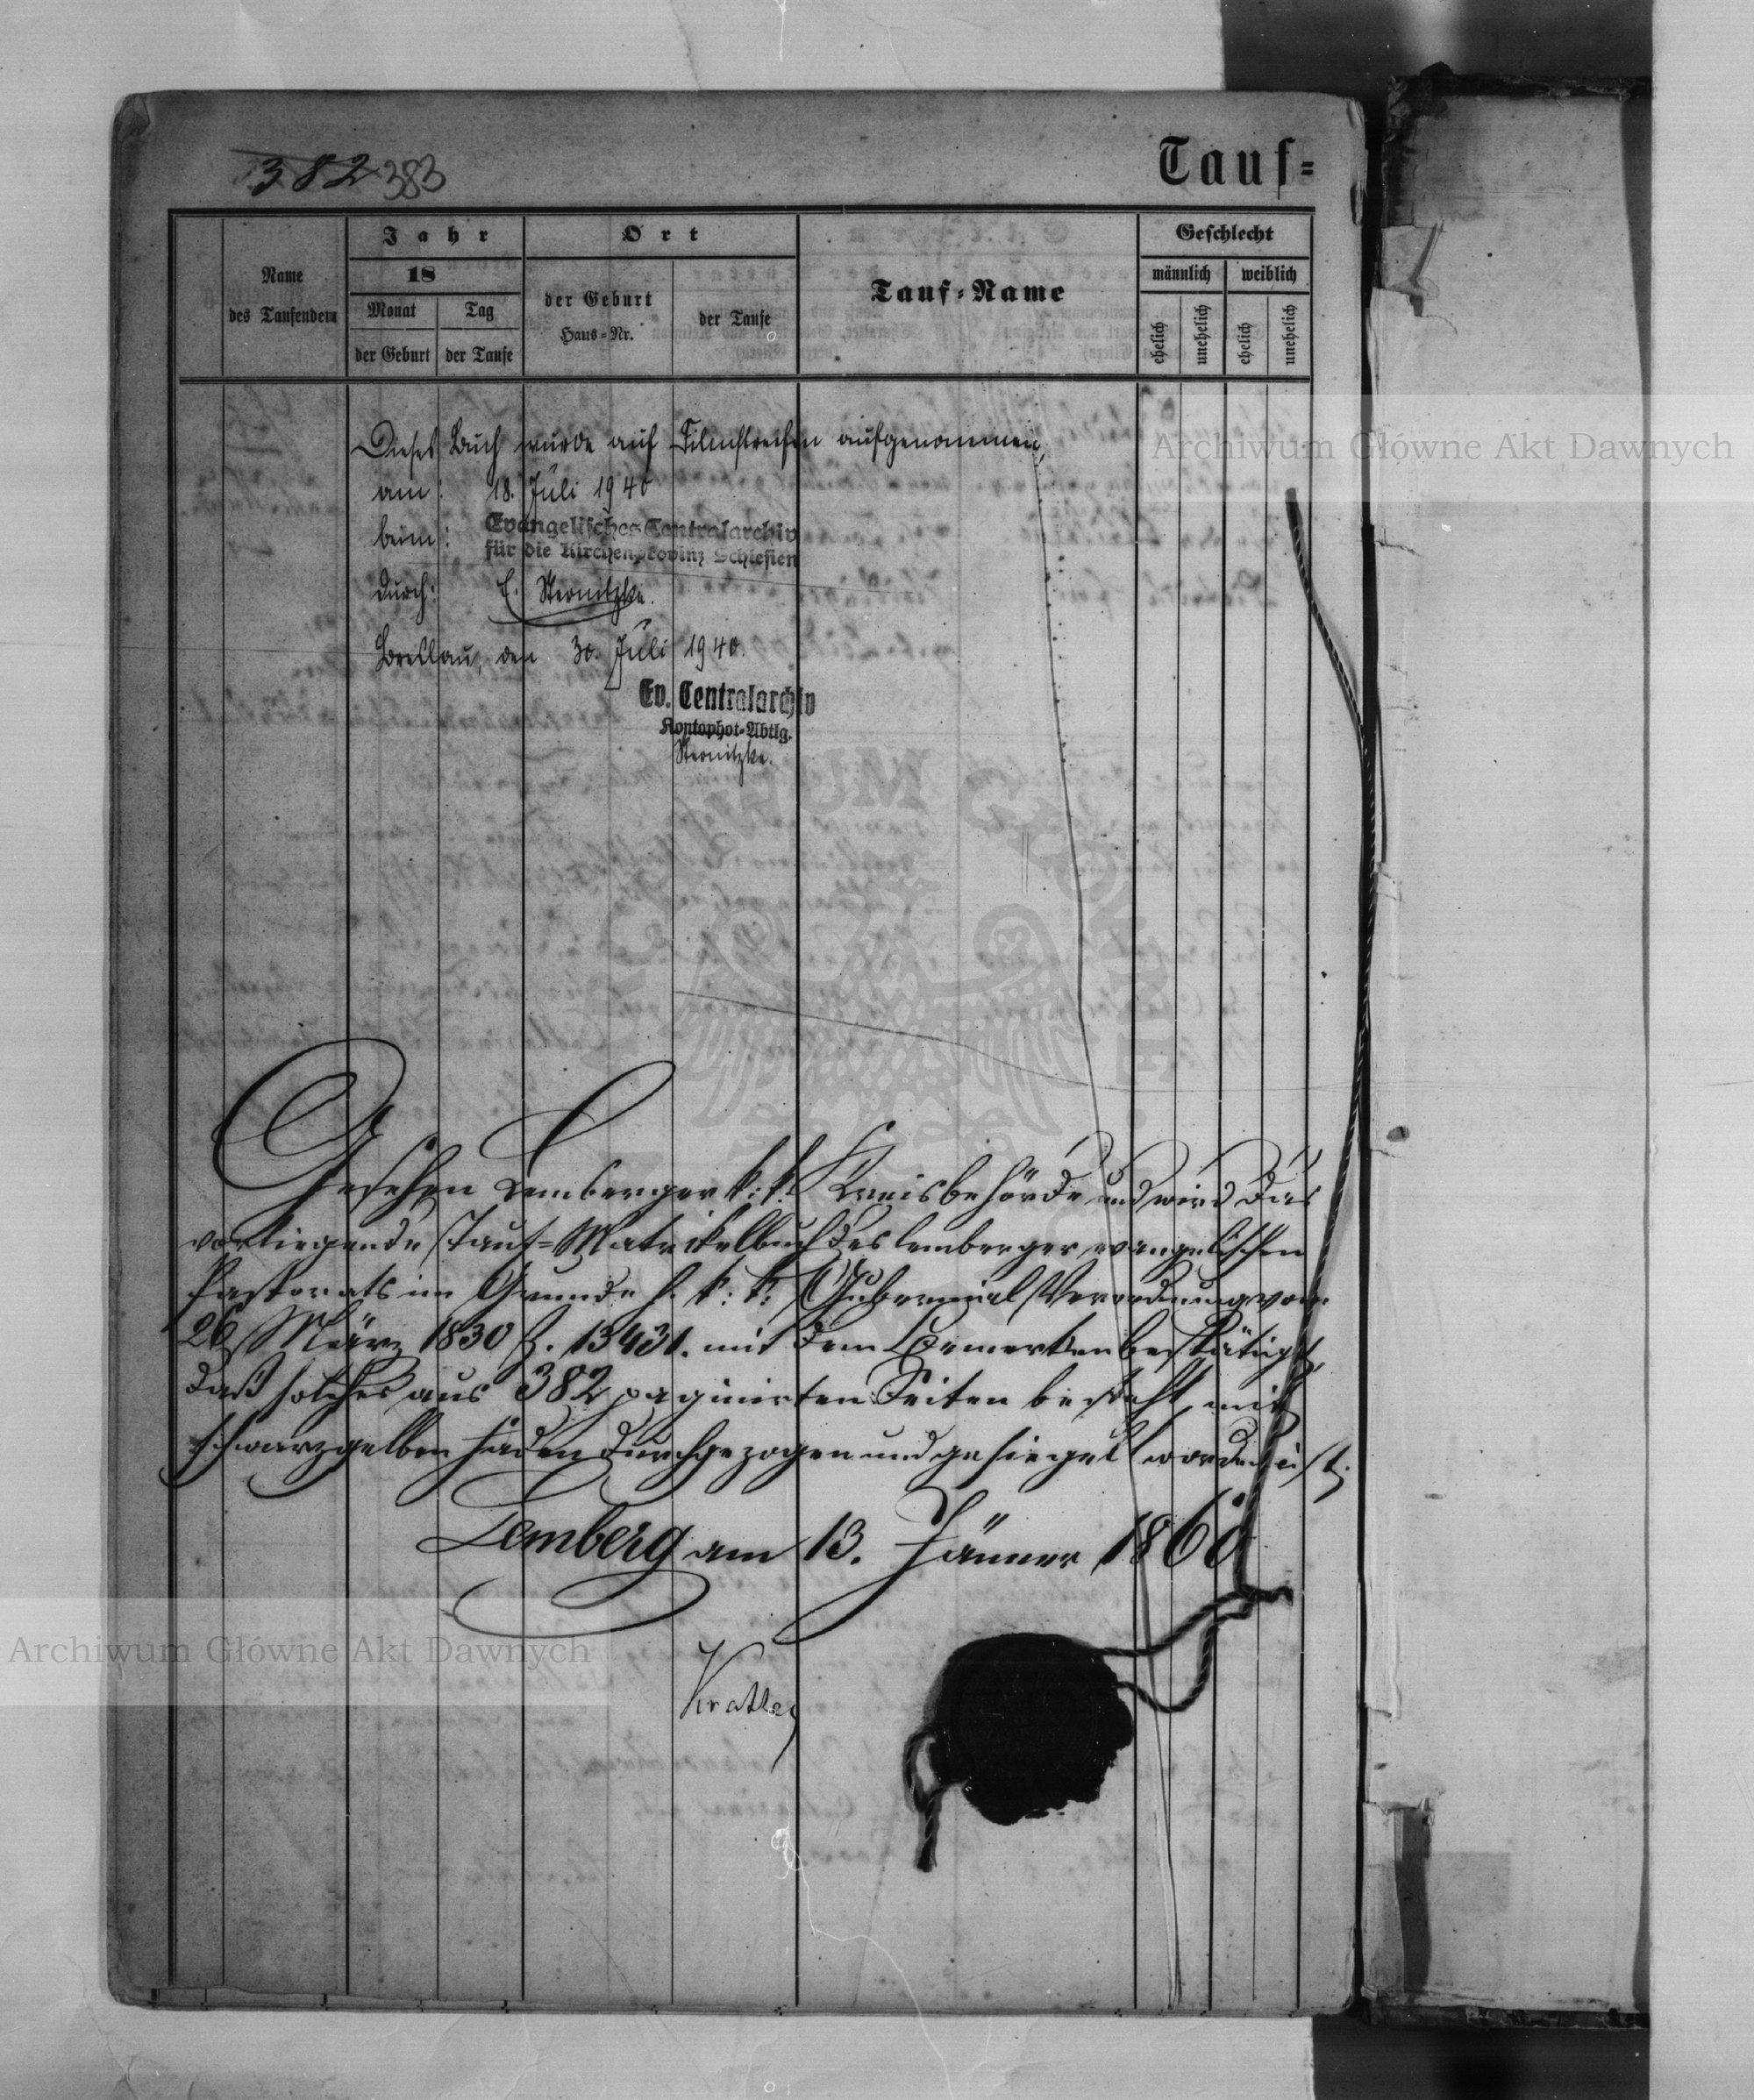 382 383
Tauf=
Name
des Taufenden
Jahr
18
Monat
der Geburt
Tag
der Taufe
Ort
der Geburt
Haus=Nr.
der Taufe
Tauf=Name
Geschlecht
männlich
weiblich
ehelich
unehelich
ehelich
unehelich
Dieses Buch wurde auf Filmstreifen aufgenommen,
am: 18. Juli 1940
beim: Evangelisches Centralarchiv
für die Kirchenprovinz Schlesien
durch: E. Sternitzke.
Breslau, den 30. Juli 1940.
Ev. Centralarchiv
Kontophot=Abtlg.
Sternitzke.
Gesehen Lemberger k: k: Kreisbehörde und wird das
vorliegende Tauf=Matrikelbuch des lemberger evangelischen
Pastorats im Grunde h. k: k: Gubernial Verordnung vom
26 März 1830 Z. 13431. mit dem Bemerken bestätigt,
daß solches aus 382 paginirten Seiten besteht, mit
schwarzgelben Faden durchgezogen und gesiegelt worden ist.
Lemberg am 13. Jänner 1860
Archiwum Główne Akt Dawnych
Archiwum Główne Akt Dawnych